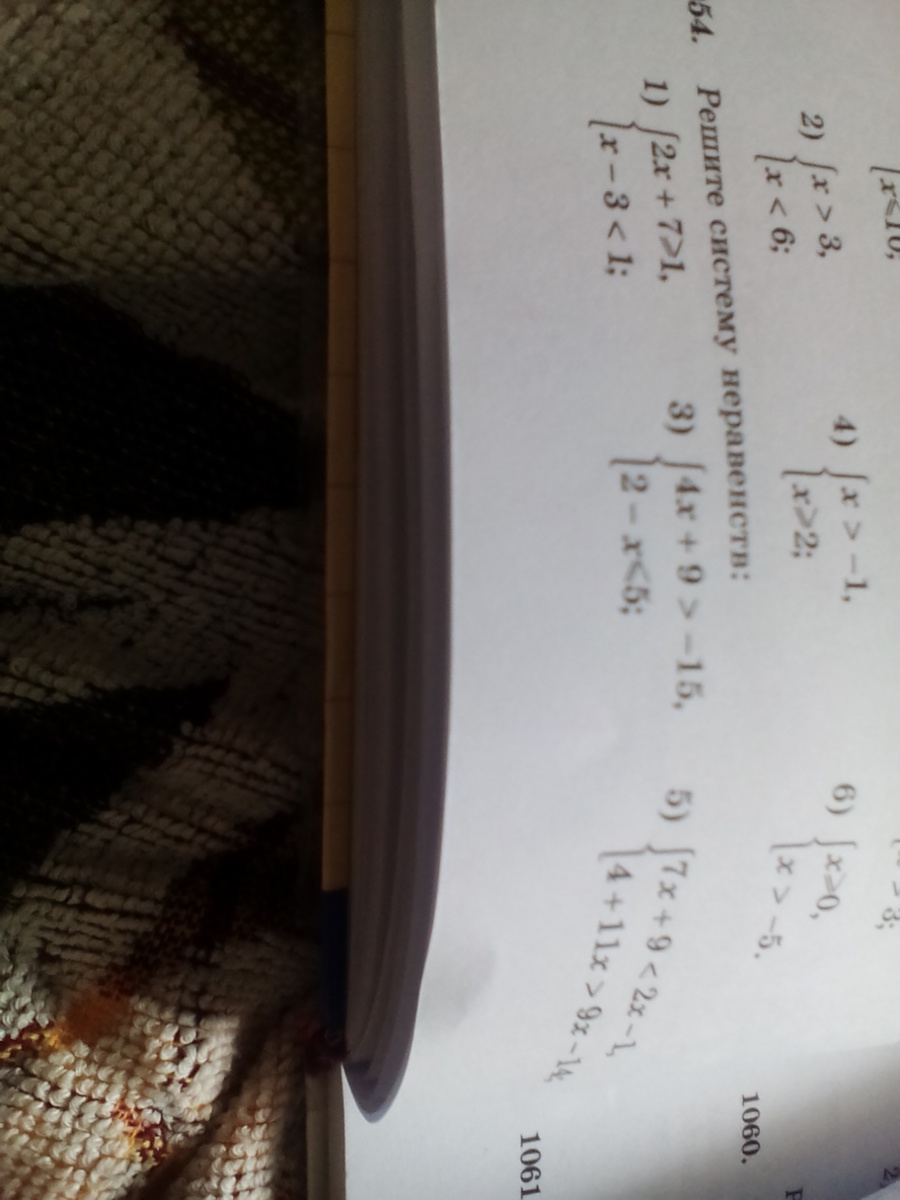 x⩽10;
> 3;
2) { x > 3,
x < 6;
4) { x > −1,
x⩾2;
6) { x⩾0,
x > −5.
54. Решите систему неравенств:
1) { 2x + 7⩾1,
x − 3 < 1;
3) { 4x + 9 > −15,
2 − x⩽5;
5) { 7x + 9 < 2x − 1,
4 + 11x > 9x − 14;
1060.
1061